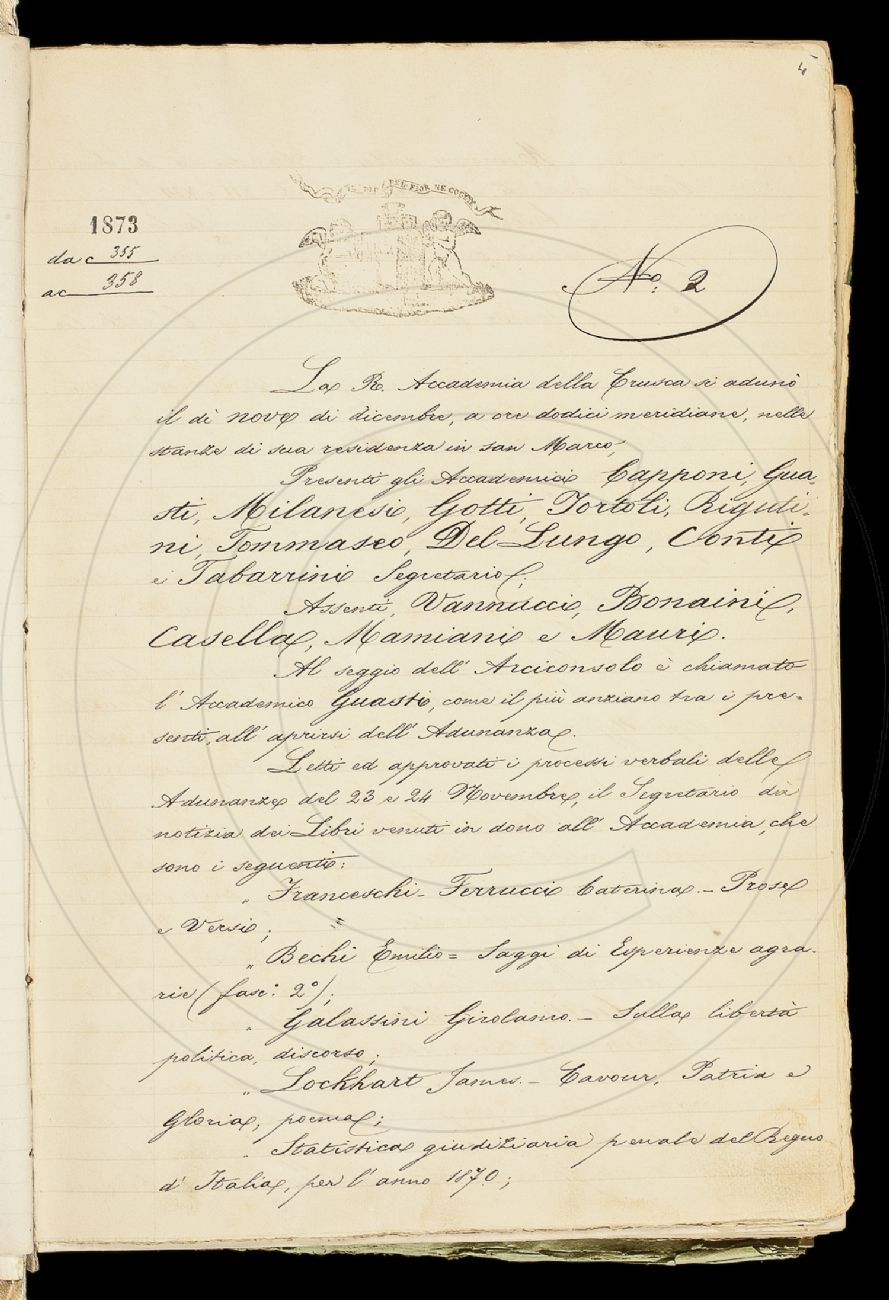 4
IL PIÙ BEL FIOR NE COGLIE
1873
da c 355
a c 358
No: 2
La R. Accademia della Crusca si adunò
il dì nove di dicembre, a ore dodici meridiane, nelle
stanze di sua residenza in san Marco;
Presenti gli Accademici Capponi, Gua-
sti, Milanesi, Gotti, Tortoli, Riguti-
ni, Tommaseo, Del Lungo, Conti
e Tabarrini Segretario;
Assenti, Vannucci, Bonaini,
Casella, Mamiani e Mauri.
Al seggio dell' Arciconsolo è chiamato
l' Accademico Guasti, come il più anziano tra i pre-
senti, all' aprirsi dell' Adunanza.
Letti ed approvati i processi verbali delle
Adunanze del 23 e 24 Novembre, il Segretario dà
notizia dei Libri venuti in dono all' Accademia, che
sono i seguenti:
" Franceschi-Ferrucci Caterina. - Prose
e Versi;
" Bechi Emilio = Saggi di Esperienze agra-
rie (fasc: 2º);
" Galassini Girolamo. - Sulla libertà
politica, discorso;
" Lockhart James. - Cavour, Patria e
Gloria, poema;
" Statistica giudiziaria penale del Regno
d' Italia, per l' anno 1870;